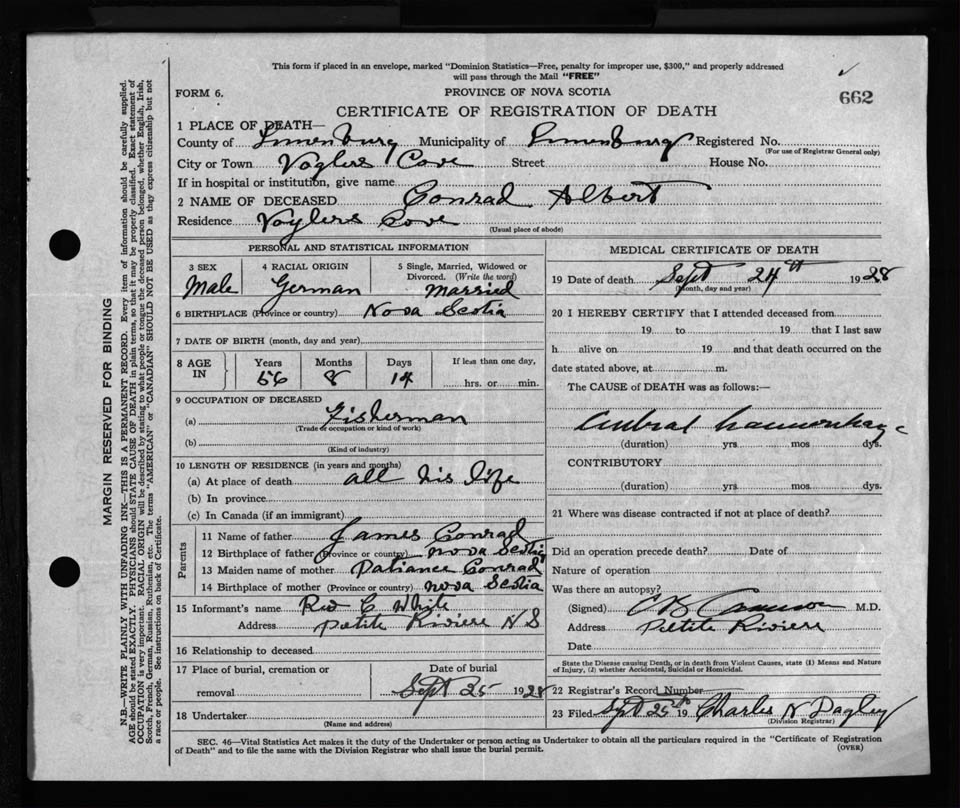 This form if placed in an envelope, marked "Dominion Statistics—Free, penalty for improper use, $300," and properly addressed
will pass through the Mail "FREE"
FORM 6.
PROVINCE OF NOVA SCOTIA
662
CERTIFICATE OF REGISTRATION OF DEATH
1 PLACE OF DEATH—
County of Lunenburg Municipality of Lunenburg Registered No.
(For use of Registrar General only)
City or Town Voglers Cove Street House No.
If in hospital or institution, give name
2 NAME OF DECEASED Conrad Albert
Residence Voylers Cove
(Usual place of abode)
PERSONAL AND STATISTICAL INFORMATION
3 SEX Male
4 RACIAL ORIGIN German
5 Single, Married, Widowed or Divorced. (Write the word) Married
6 BIRTHPLACE (Province or country) Nova Scotia
7 DATE OF BIRTH (month, day and year)
8 AGE IN Years 66 Months 8 Days 14 If less than one day, hrs. or min.
9 OCCUPATION OF DECEASED
(a) Fisherman
(Trade or occupation or kind of work)
(b)
(Kind of industry)
10 LENGTH OF RESIDENCE (in years and months)
(a) At place of death all his life
(b) In province
(c) In Canada (if an immigrant)
Parents
11 Name of father James Conrad
12 Birthplace of father (Province or country) Nova Scotia
13 Maiden name of mother Patiance Conrad
14 Birthplace of mother (Province or country) Nova Scotia
15 Informant's name Rev C White
Address Petite Riviere N S
16 Relationship to deceased
17 Place of burial, cremation or removal
Date of burial
Sept 25 1928
18 Undertaker
(Name and address)
MEDICAL CERTIFICATE OF DEATH
19 Date of death Sept 24th 1928
(Month, day and year)
20 I HEREBY CERTIFY that I attended deceased from
19 to 19 that I last saw
h alive on 19 and that death occurred on the
date stated above, at m.
The CAUSE of DEATH was as follows:—
(duration) yrs mos dys.
CONTRIBUTORY
(duration) yrs mos dys.
21 Where was disease contracted if not at place of death?
Did an operation precede death? Date of
Nature of operation
Was there an autopsy?
(Signed) M.D.
Address Petite Riviere
Date
State the Disease causing Death, or in death from Violent Causes, state (1) Means and Nature
of Injury, (2) whether Accidental, Suicidal or Homicidal.
22 Registrar's Record Number
23 Filed Sept 25th 19 Charles N Dagley
(Division Registrar)
SEC. 46—Vital Statistics Act makes it the duty of the Undertaker or person acting as Undertaker to obtain all the particulars required in the "Certificate of Registration
of Death" and to file the same with the Division Registrar who shall issue the burial permit.
(OVER)
MARGIN RESERVED FOR BINDING
N.B.—WRITE PLAINLY WITH UNFADING INK—THIS IS A PERMANENT RECORD. Every item of information should be carefully supplied.
AGE should be stated EXACTLY. PHYSICIANS should STATE CAUSE OF DEATH in plain terms, so that it may be properly classified. Exact statement of
OCCUPATION is very important. RACIAL ORIGIN will be described by stating to what people or tongue the deceased person belonged, whether English, Irish,
Scotch, French, German, Russian, Ruthenian, etc. The terms "AMERICAN" or "CANADIAN" SHOULD NOT BE USED as they express citizenship but not
a race or people. See instructions on back of Certificate.